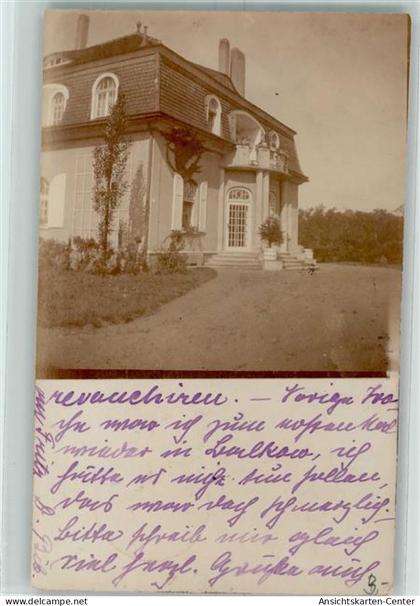 revanchiren. — Vorige Wo-
che war ich zum ersten Mal
wieder in Balkow, ich
hätte es nicht tun sollen,
das war doch schmerzlich.
Bitte schreib mir gleich
viel herzl. Grüße auch
3,-
Ansichtskarten-Center